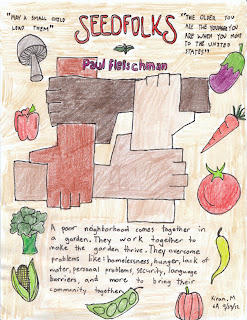 SEEDFOLKS
"MAY A SMALL CHILD
LEAD THEM"
"THE OLDER YOU
ARE THE YOUNGER YOU
ARE WHEN YOU MOVE
TO THE UNITED
STATES!"
Paul Fleischman
A poor neighborhood comes together in
a garden. They work together to
make the garden thrive. They overcome
problems like: homelessness, hunger, lack of
water, personal problems, security, language
barriers, and more to bring their
community together.
Kiran, M
6A 9/5/12